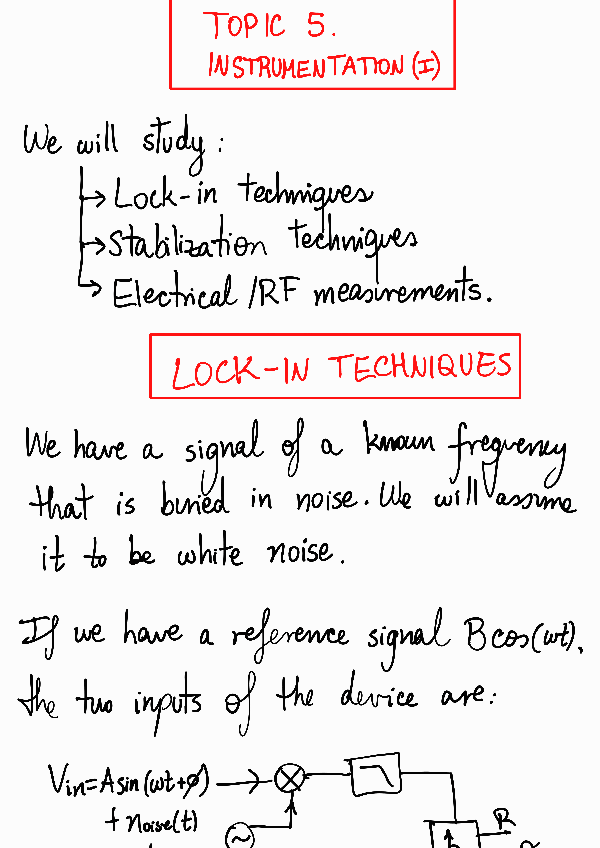 TOPIC 5.
INSTRUMENTATION (I)
We will study:
→ Lock-in techniques
→ Stabilization techniques
→ Electrical /RF measurements.
LOCK-IN TECHNIQUES
We have a signal of a known frequency
that is buried in noise. We will assume
it to be white noise.
If we have a reference signal B cos(ωt),
the two inputs of the device are:
Vin = A sin(ωt+φ)
+ noise(t)
R